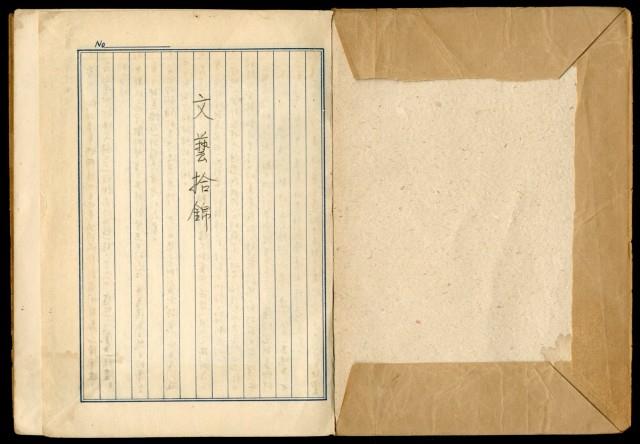 No
文藝拾錦